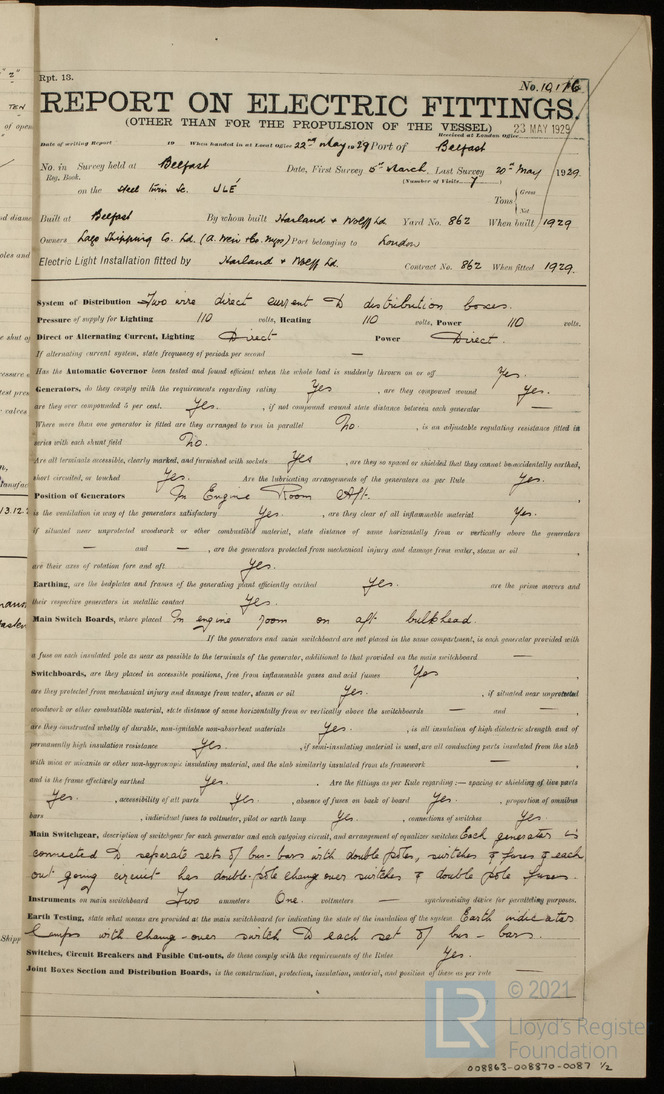 Rpt. 13.
No. 10176
REPORT ON ELECTRIC FITTINGS.
(OTHER THAN FOR THE PROPULSION OF THE VESSEL)
23 MAY 1929
Received at London Office
Date of writing Report 19 When handed in at Local Office 22nd May 1929 Port of Belfast
No. in Survey held at Belfast Date, First Survey 5th March Last Survey 20th May 1929
Reg. Book. (Number of Visits 7)
on the Steel Twin Sc. ULÉ Tons { Gross
Net
Built at Belfast By whom built Harland & Wolff Ld Yard No. 862 When built 1929
Owners Lago Shipping Co. Ld. (A. Weir & Co. Mgrs) Port belonging to London
Electric Light Installation fitted by Harland & Wolff Ld. Contract No. 862 When fitted 1929.
System of Distribution Two wire direct current to distribution boxes.
Pressure of supply for Lighting 110 volts, Heating 110 volts, Power 110 volts.
Direct or Alternating Current, Lighting Direct Power Direct.
If alternating current system, state frequency of periods per second —
Has the Automatic Governor been tested and found efficient when the whole load is suddenly thrown on or off Yes.
Generators, do they comply with the requirements regarding rating Yes , are they compound wound Yes.
are they over compounded 5 per cent. Yes. , if not compound wound state distance between each generator —
Where more than one generator is fitted are they arranged to run in parallel No. , is an adjustable regulating resistance fitted in
series with each shunt field No.
Are all terminals accessible, clearly marked, and furnished with sockets Yes , are they so spaced or shielded that they cannot be accidentally earthed,
short circuited, or touched Yes. Are the lubricating arrangements of the generators as per Rule Yes.
Position of Generators In Engine Room Aft.
is the ventilation in way of the generators satisfactory Yes. , are they clear of all inflammable material Yes.
if situated near unprotected woodwork or other combustible material, state distance of same horizontally from or vertically above the generators
— and — , are the generators protected from mechanical injury and damage from water, steam or oil ,
are their axes of rotation fore and aft. Yes.
Earthing, are the bedplates and frames of the generating plant efficiently earthed Yes. are the prime movers and
their respective generators in metallic contact Yes.
Main Switch Boards, where placed In engine room on aft bulkhead.
If the generators and main switchboard are not placed in the same compartment, is each generator provided with
a fuse on each insulated pole as near as possible to the terminals of the generator, additional to that provided on the main switchboard —
Switchboards, are they placed in accessible positions, free from inflammable gases and acid fumes Yes ,
are they protected from mechanical injury and damage from water, steam or oil Yes. , if situated near unprotected
woodwork or other combustible material, state distance of same horizontally from or vertically above the switchboards — and — ,
are they constructed wholly of durable, non-ignitable non-absorbent materials Yes. , is all insulation of high dielectric strength and of
permanently high insulation resistance Yes. , if semi-insulating material is used, are all conducting parts insulated from the slab
with mica or micanite or other non-hygroscopic insulating material, and the slab similarly insulated from its framework — ,
and is the frame effectively earthed Yes. . Are the fittings as per Rule regarding:— spacing or shielding of live parts
Yes. , accessibility of all parts Yes. , absence of fuses on back of board Yes. , proportion of omnibus
bars , individual fuses to voltmeter, pilot or earth lamp Yes. , connections of switches Yes.
Main Switchgear, description of switchgear for each generator and each outgoing circuit, and arrangement of equalizer switches Each generator is
connected to separate sets of bus-bars with double poles, switches & fuses & each
out going circuit has double-pole change over switches & double pole fuses.
Instruments on main switchboard Two ammeters One. voltmeters — synchronising device for paralleling purposes.
Earth Testing, state what means are provided at the main switchboard for indicating the state of the insulation of the system Earth indicator
lamps with change-over switch to each set of bus-bars.
Switches, Circuit Breakers and Fusible Cut-outs, do these comply with the requirements of the Rules Yes.
Joint Boxes Section and Distribution Boards, is the construction, protection, insulation, material, and position of these as per rule —
LR
© 2021
Lloyd's Register
Foundation
008863-008870-0087 1/2